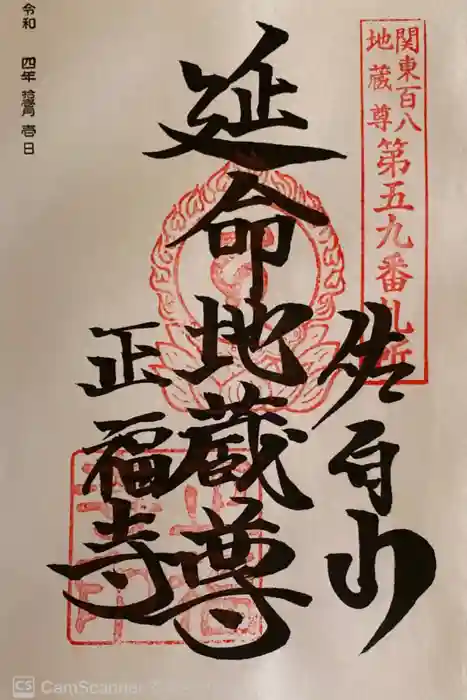 関東百八
地蔵尊
第五九番札所
佐百山
延命地蔵尊
正福寺
令和 四年 拾壱月 壱日
CS CamScanner